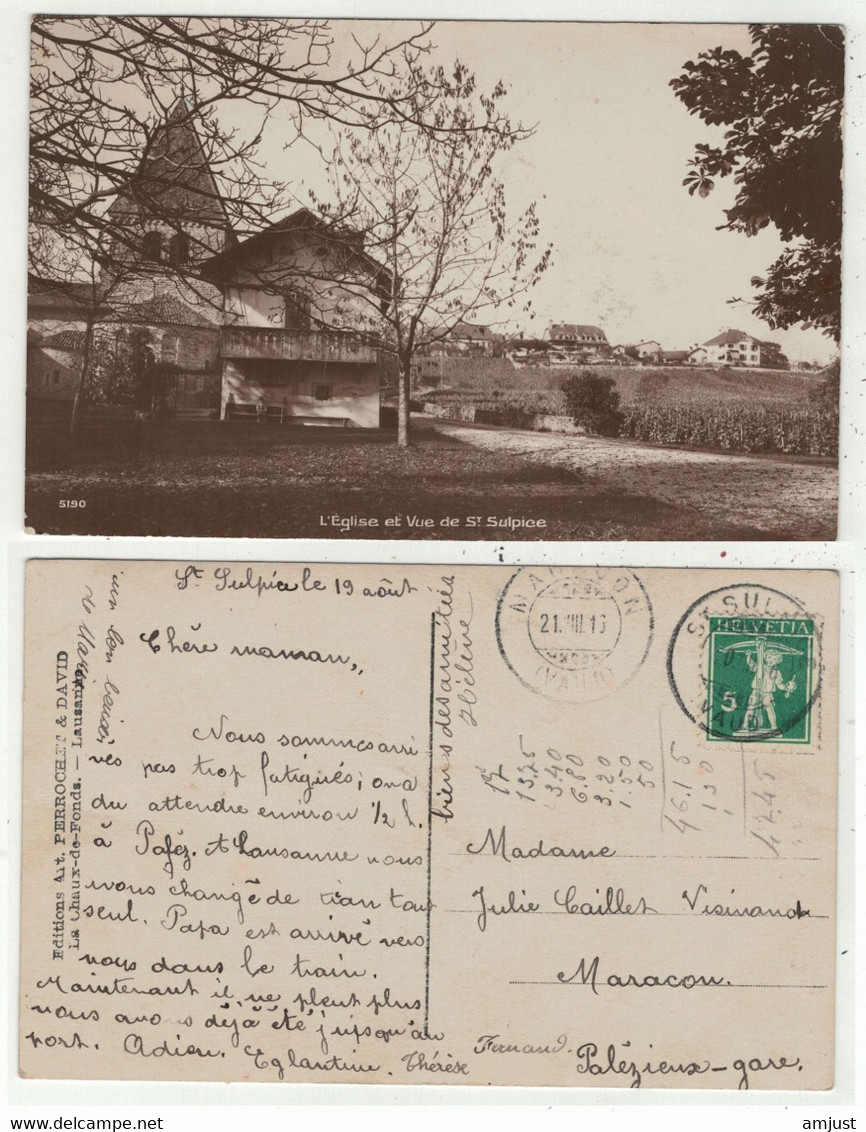 5190
L'Église et Vue de ST Sulpice
St Sulpice le 19 août
Chère maman,,
Nous sommes arri
vés pas trop fatigués; on a
du attendre environ 1/2 h.
à Paléz. A Lausanne nous
avons changé de train tout
seul. Papa est arrivé vers
nous dans le train.
Maintenant il ne pleut plus
nous avons déjà été jusqu'au
port. Adieu. Eglantine. Thérèse
Fernand.
un bon baiser
de
Editions Art. PERROCHET & DAVID
La Chaux-de-Fonds. — Lausanne
biens des amitiés
Hélène
MARACON
21.VIII.16
(VAUD)
ST SULPICE
(VAUD)
HELVETIA
5
17
13.75
3.40
6.80
3.20
1.50
50
46.15
1 30
47.45
Madame
Julie Caillet Visinand
Maracon.
Palézieux-gare.
amjust